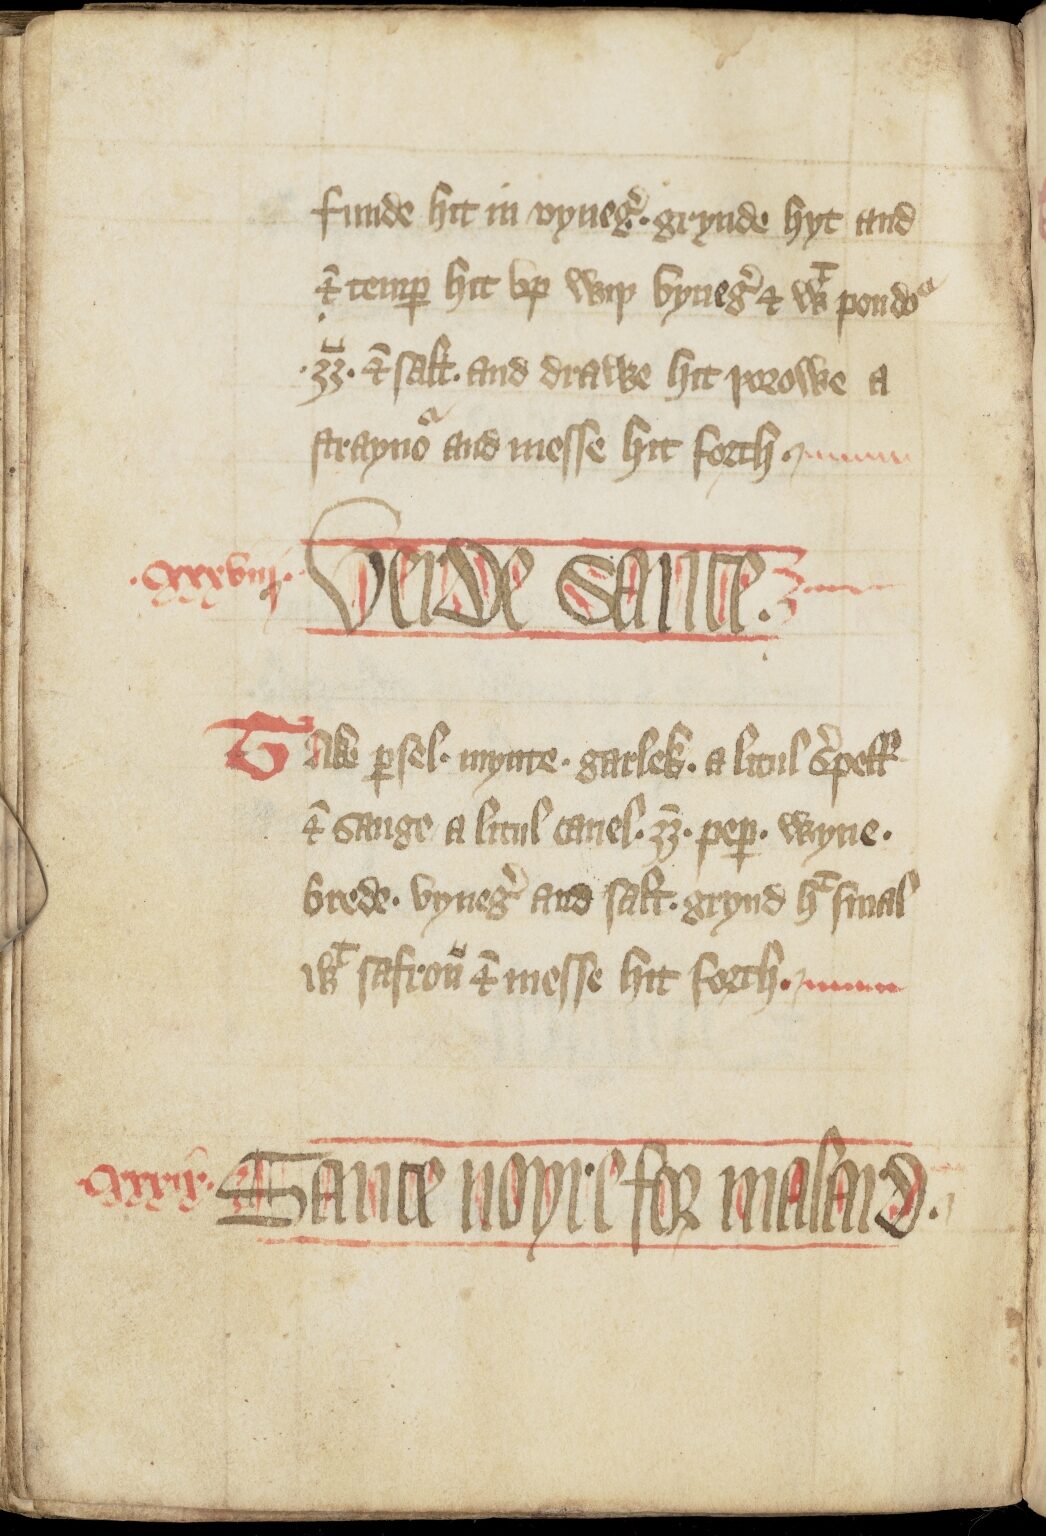 funde hit in vyneg̉. grynde hyt and
⁊ temꝑ hit vp wiþ vyneg̉ ⁊ wᵗ poudᵒ
.ʒʒ. ⁊ salt. and drawe hit þorowe a
straynoᵃ and messe hit forth.
.Cxxxviij. Verde Sauce.
Take ꝑsel. mynte. garlek. a litul
⁊ sauge a litul canel. ʒʒ. peꝑ. wyne.
brede. vyneg̉ and salt. grynd hᵗ smal
wᵗ safron̄ ⁊ messe hit forth.
.Cxxxix. Sauce noyre for malard.